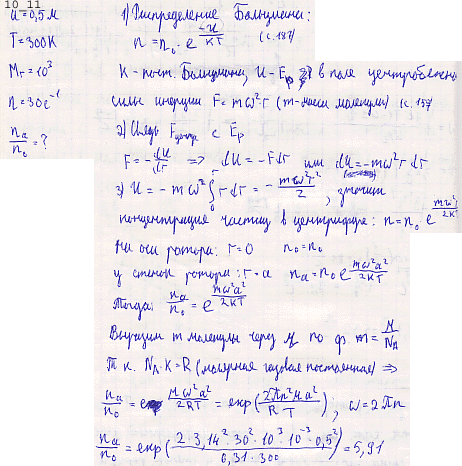 10_11
a = 0,5 м
T = 300К
Mr = 10³
n = 30 с⁻¹
nₐ/n₀ = ?
1) Распределение Больцмана:
n = n₀ · e^(-U/KT) (с. 187)
К - пост. Больцмана, U - Eр в поле центробежн.
силы инерции F = mω²r (m - масса молекулы) (с. 157
2) Связь Fцентр с Eр
F = - dU/dr => dU = -Fdr или dU = -mω²r dr
3) U = -mω² ∫₀^r r dr = - mω²r²/2, значит
концентрация частиц в центрифуге: n = n₀ e^(mω²r²/2KT)
На оси ротора: r = 0 n₀ = n₀
у стенок ротора: r = a nₐ = n₀ e^(mω²a²/2KT)
Тогда: nₐ/n₀ = e^(mω²a²/2KT)
Выразим m молекулы через μ по ф m = M/Nₐ
Т.к. Nₐ·К = R (молярная газовая постоянная) =>
nₐ/n₀ = exp Mω²a²/2RT = exp(2πn²μa²/RT), ω = 2πn
nₐ/n₀ = exp(2·3,14²·30²·10³·10⁻³·0,5²/8,31·300) = 5,91